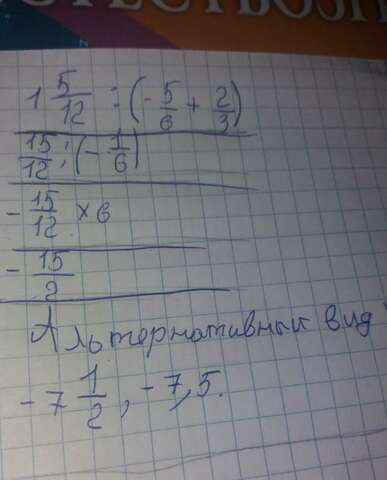 ЕСТВОЗН
1 5/12 : (- 5/6 + 2/3)
15/12 : (- 1/6)
- 15/12 × 6
- 15/2
Альтернативный вид
- 7 1/2, - 7,5.